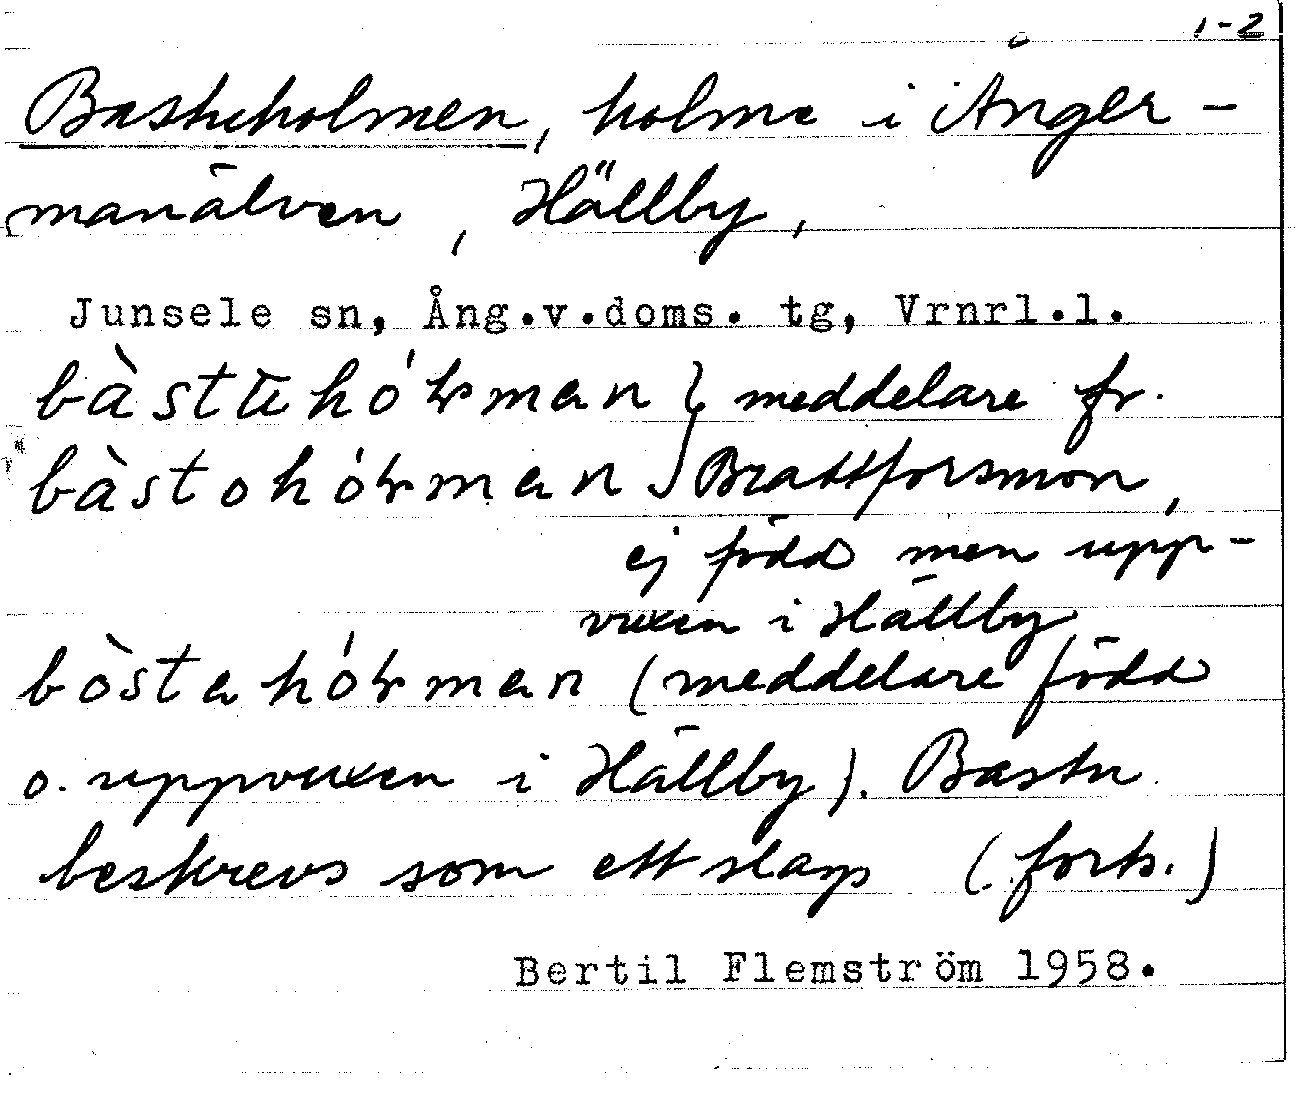 1-2
Bastuholmen, holme i Ånger-
manälven, Hällby,
Junsele sn, Ång.v.doms. tg, Vrnrl.l.
meddelare fr.
Brattforsmon,
ej född men upp-
vuxen i Hällby
(meddelare född
o. uppvuxen i Hällby). Bastu
beskrevs som ett slags (forts.)
Bertil Flemström 1958.